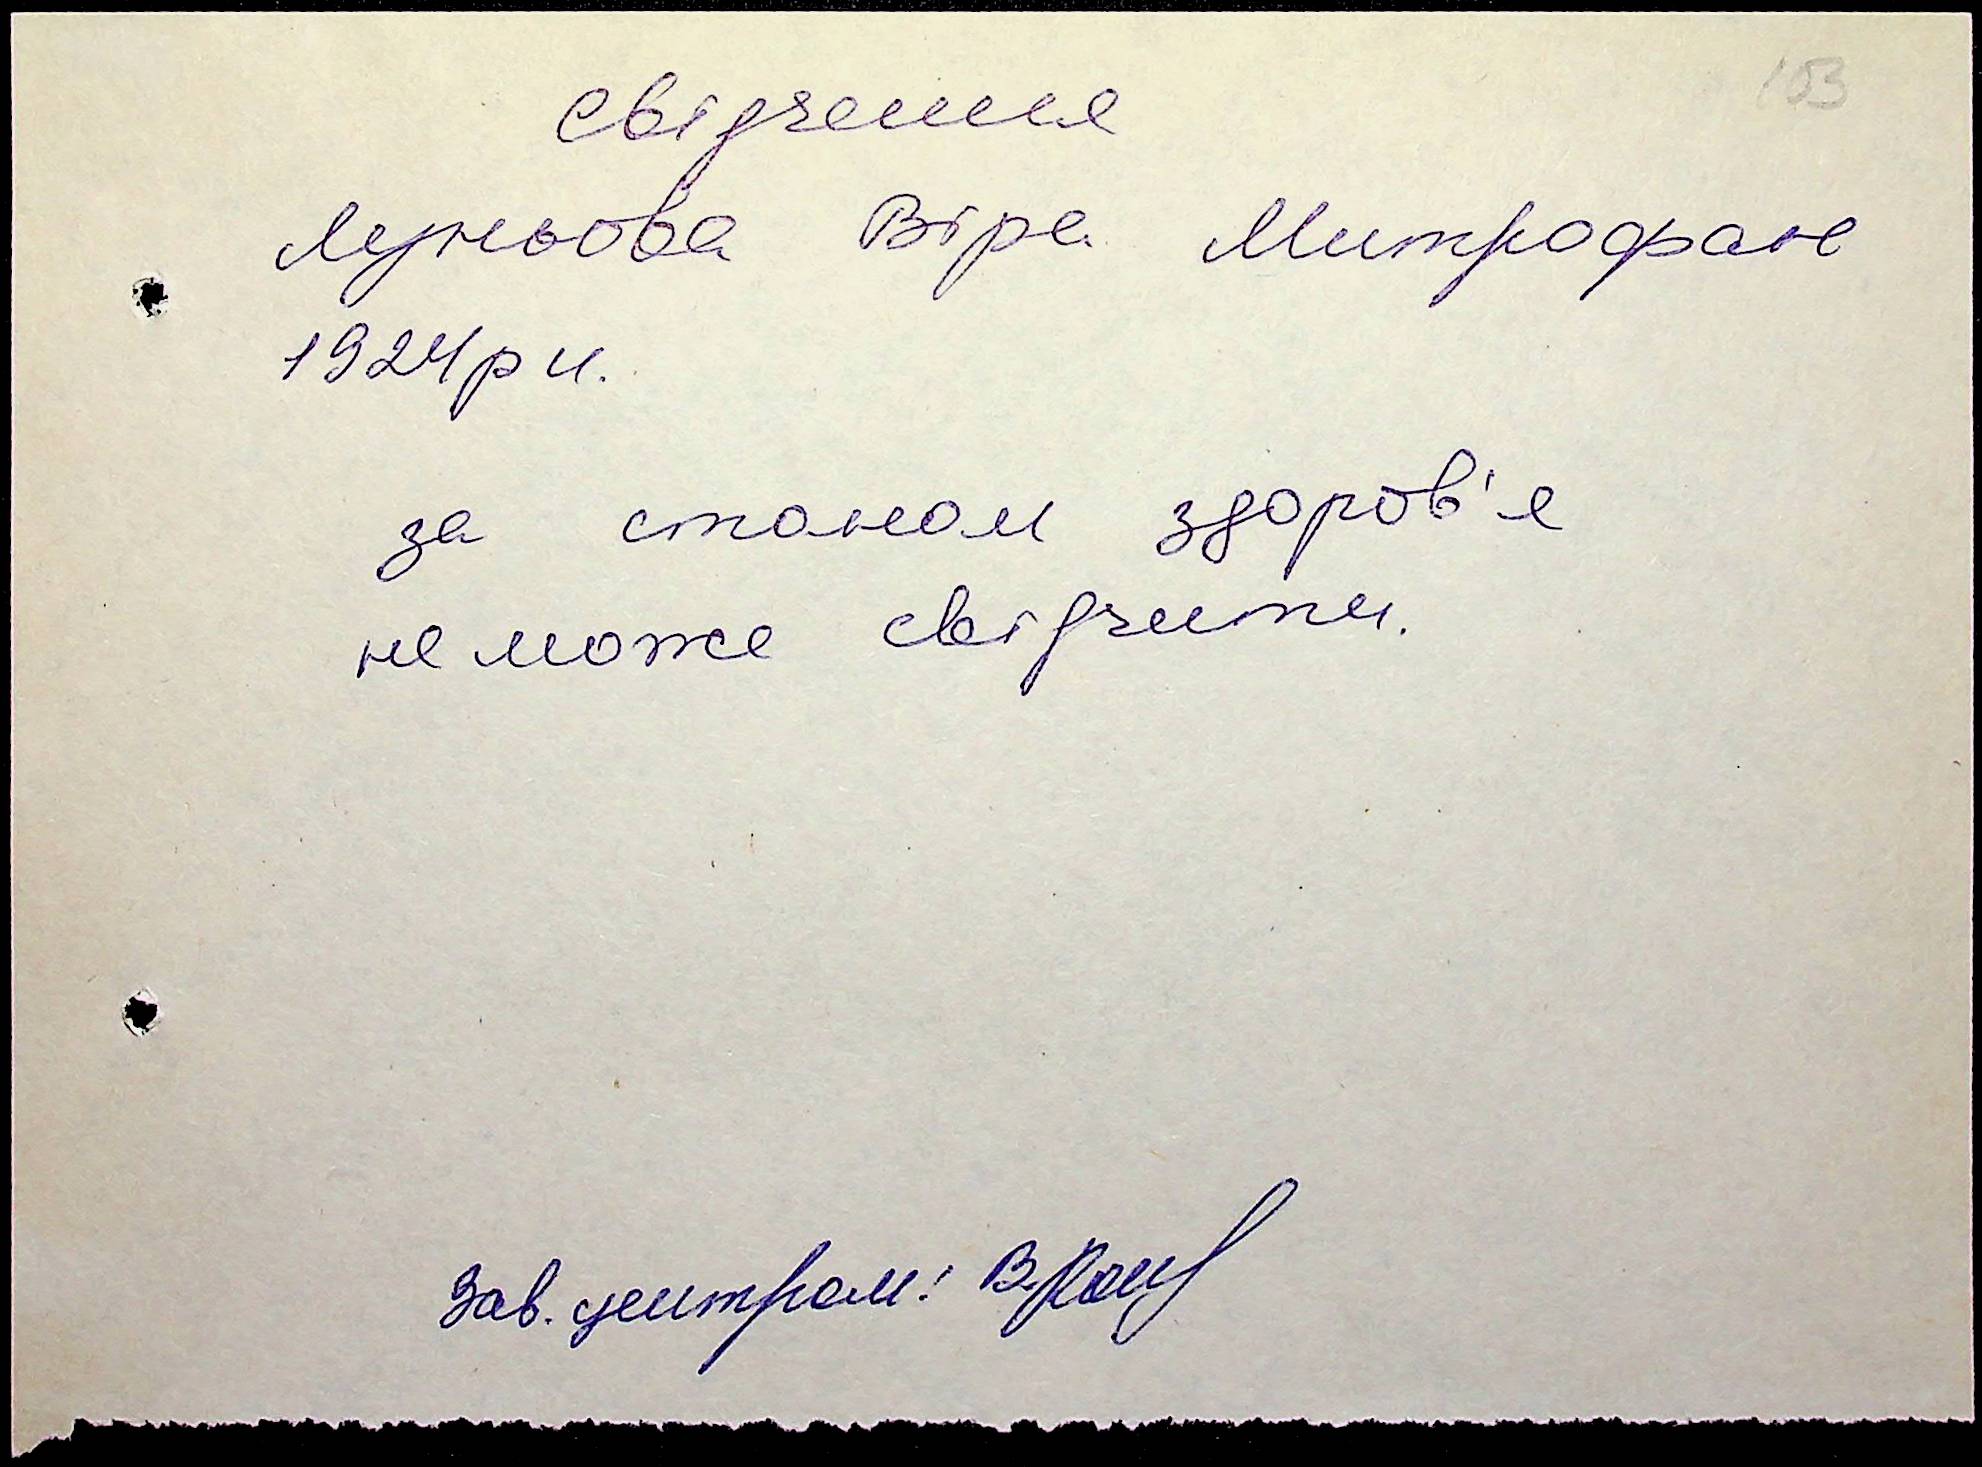 103
свідчення
Луньова Віра Митрофан
1924 р н.
за станом здоров'я
не може свідчити.
Зав. центром: